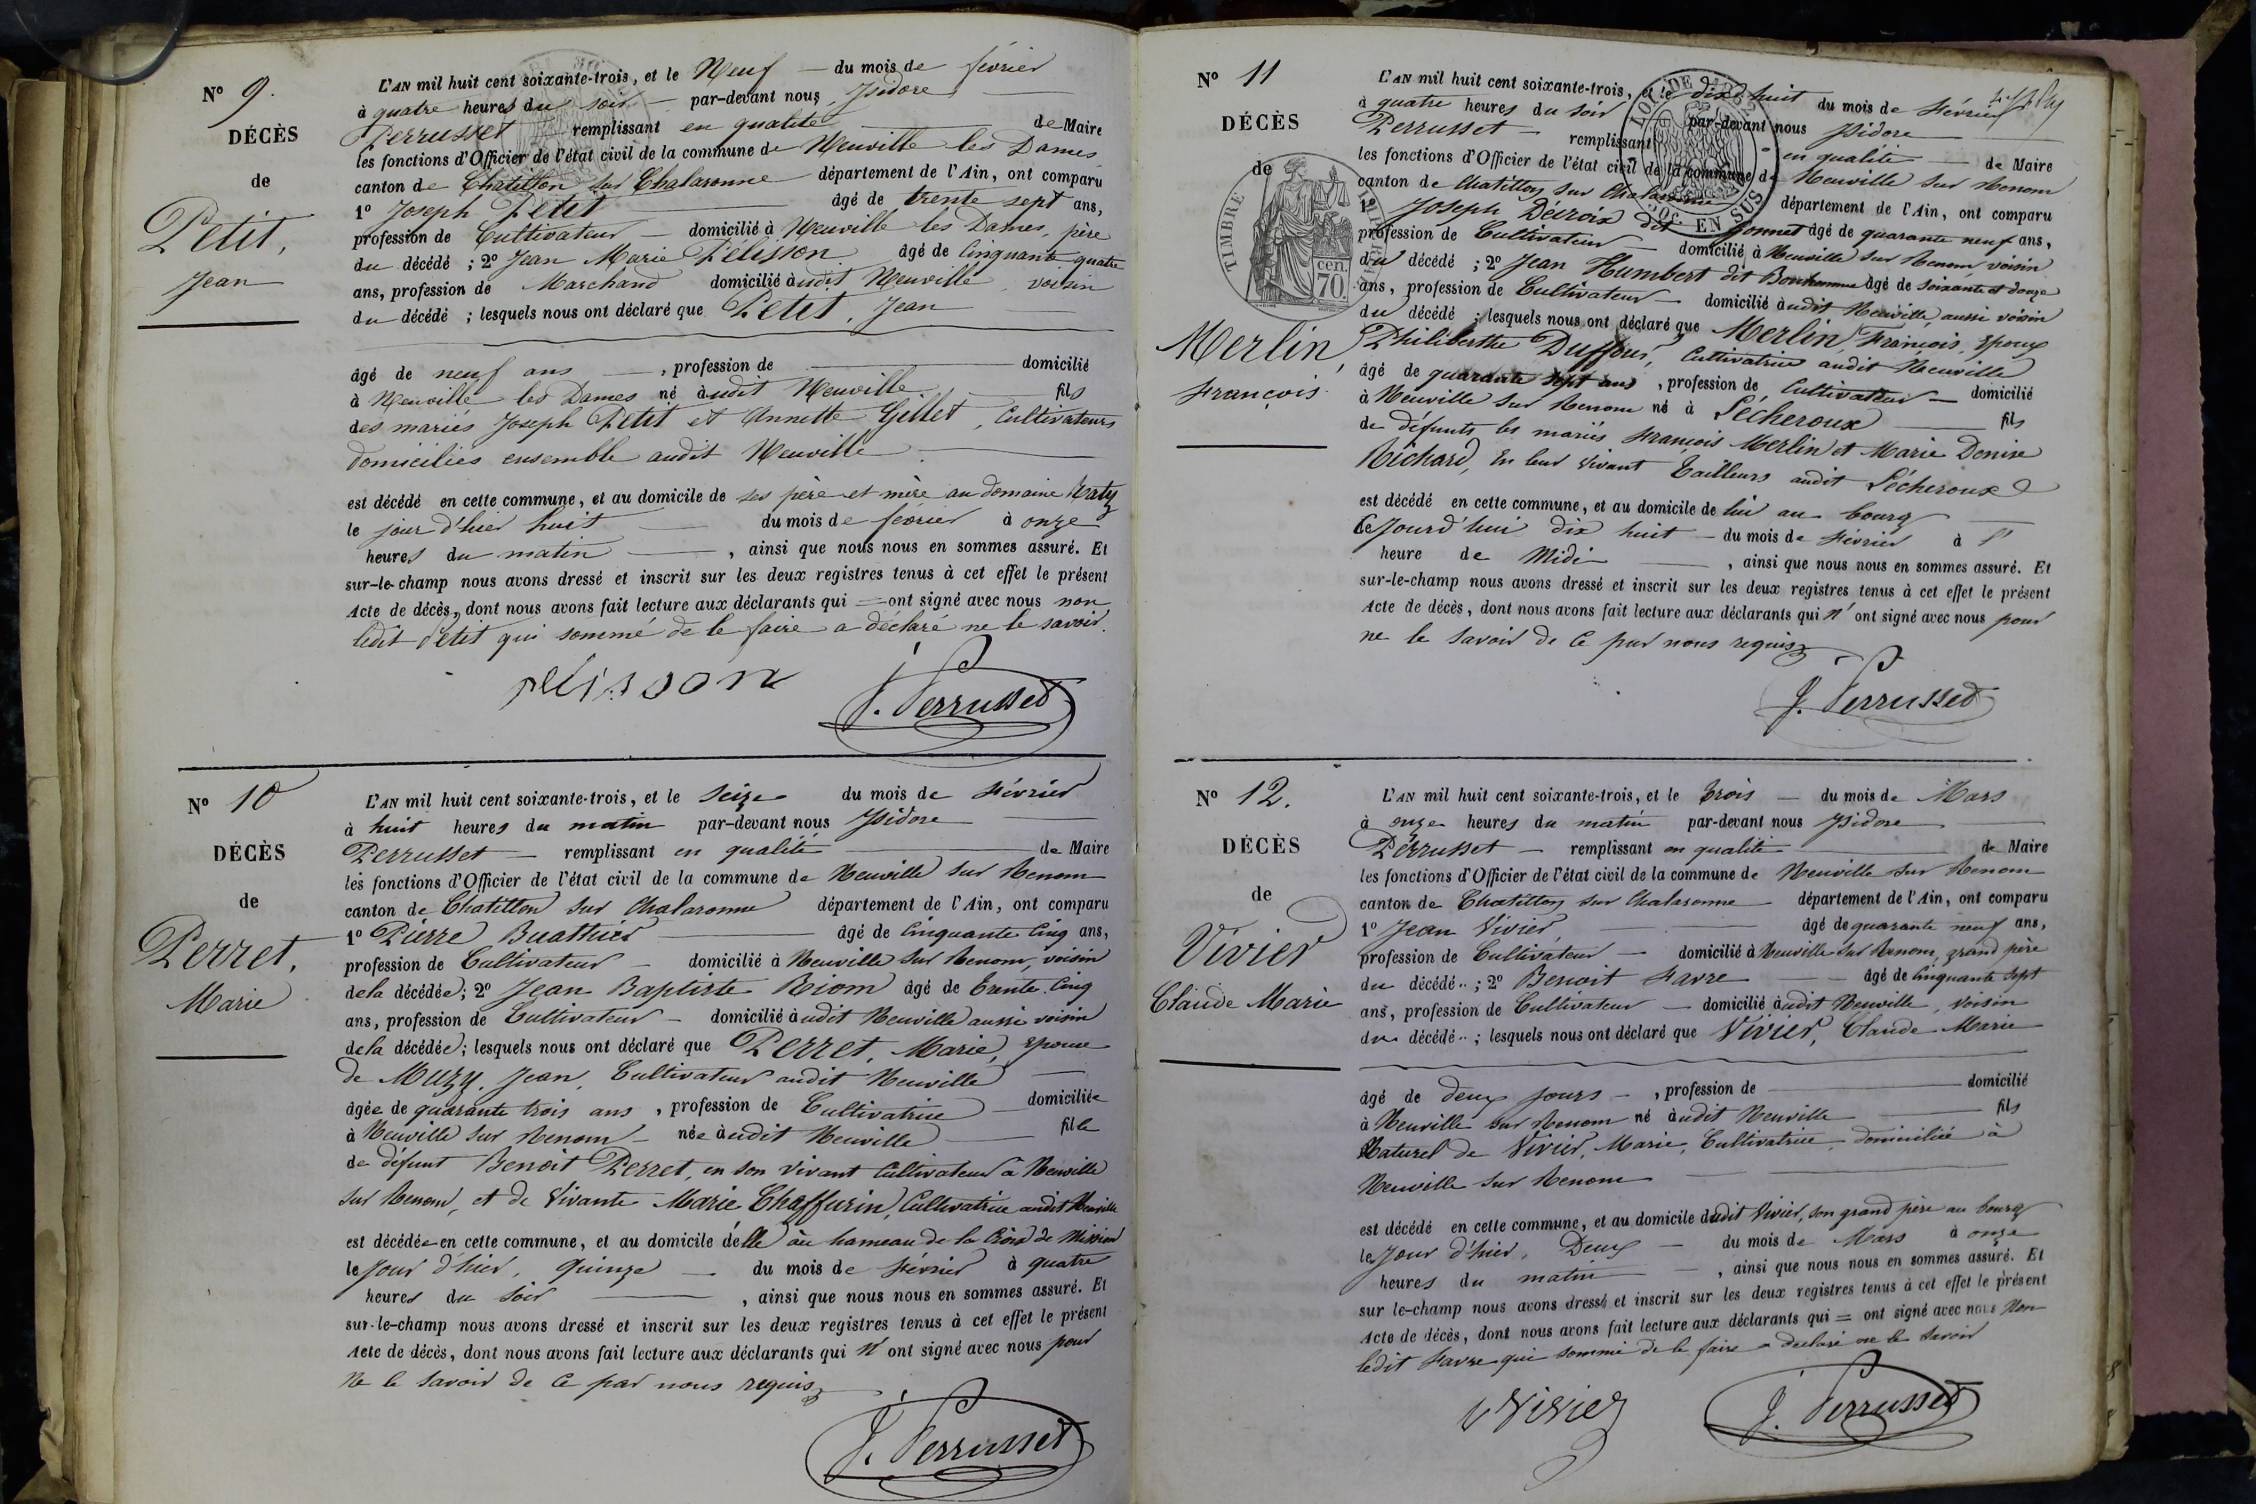 Nº 9.
DÉCÈS
de
Petit,
Jean
L'AN mil huit cent soixante-trois, et le Neuf — du mois de février
à quatre heures du soir — par-devant nous, Isidore
Perrusset remplissant en qualité de Maire
les fonctions d'Officier de l'état civil de la commune de Neuville les Dames
canton de Chatillon sur Chalaronne département de l'Ain, ont comparu
1º Joseph Petit âgé de trente sept ans,
profession de Cultivateur — domicilié à Neuville les Dames, père
du décédé ; 2º Jean Marie Pélisson âgé de Cinquante quatre
ans, profession de Marchand domicilié àudit Neuville, voisin
du décédé ; lesquels nous ont déclaré que Petit, Jean
âgé de neuf ans —, profession de — domicilié
à Neuville les Dames né àudit Neuville, fils
des mariés Joseph Petit et Annette Gillet, Cultivateurs
domiciliés ensemble audit Neuville
est décédé en cette commune, et au domicile de ses père et mère au domaine Raty
le jour d'hier huit — du mois de février à onze
heures du matin —, ainsi que nous nous en sommes assuré. Et
sur-le-champ nous avons dressé et inscrit sur les deux registres tenus à cet effet le présent
Acte de décès, dont nous avons fait lecture aux déclarants qui = ont signé avec nous non
ledit Petit qui sommé de le faire a déclaré ne le savoir.
pelisson J. Perrusset
Nº 10
DÉCÈS
de
Perret,
Marie
L'AN mil huit cent soixante-trois, et le Seize du mois de Février
à huit heures du matin par-devant nous Isidore
Perrusset — remplissant en qualité de Maire
les fonctions d'Officier de l'état civil de la commune de Neuville sur Renom
canton de Chatillon sur Chalaronne département de l'Ain, ont comparu
1º Pierre Buathier âgé de Cinquante Cinq ans,
profession de Cultivateur — domicilié à Neuville sur Renom, voisin
de la décédée ; 2º Jean Baptiste Riom âgé de Trente Cinq
ans, profession de Cultivateur — domicilié àudit Neuville aussi voisin
de la décédée ; lesquels nous ont déclaré que Perret, Marie, Epouse
de Muzy, Jean, Cultivateur audit Neuville —
âgée de quarante trois ans, profession de Cultivatrice domiciliée
à Neuville sur Renom — née àudit Neuville — fille
de défunt Benoit Perret, en son vivant Cultivateur à Neuville
sur Renom, et de Vivante Marie Chaffurin, Cultivatrice audit Neuville
est décédée en cette commune, et au domicile d'elle au hameau de la Croix de Mission
le Jour d'hier, Quinze — du mois de Février à quatre
heures du soir —, ainsi que nous nous en sommes assuré. Et
sur-le-champ nous avons dressé et inscrit sur les deux registres tenus à cet effet le présent
Acte de décès, dont nous avons fait lecture aux déclarants qui n' ont signé avec nous pour
ne le savoir de ce par nous requis
J. Perrusset
Nº 11
DÉCÈS
de
Merlin,
François.
TIMBRE
cen. 70.
LOI DE 1862
EN SUS
L'AN mil huit cent soixante-trois, et le dix huit du mois de Février
à quatre heures du soir par-devant nous Isidore
Perrusset — remplissant en qualité — de Maire
les fonctions d'Officier de l'état civil de la commune de Neuville sur Renom
canton de Chatillon sur Chalaronne département de l'Ain, ont comparu
1º Joseph Décroix dit Jonnet âgé de quarante neuf ans,
profession de Cultivateur — domicilié à Neuville sur Renom voisin
du décédé ; 2º Jean Humbert dit Bonhomme âgé de soixante et douze
ans, profession de Cultivateur — domicilié àudit Neuville, aussi voisin
du décédé ; lesquels nous ont déclaré que Merlin, François, Epoux
Philiberthe Duffour, Cultivatrice audit Neuville
âgé de quarante sept ans, profession de Cultivateur — domicilié
à Neuville sur Renom né à Lécheroux — fils
de défunts les mariés François Merlin et Marie Denise
Richard, en leur vivant Tailleurs audit Lécheroux
est décédé en cette commune, et au domicile de lui au bourg —
Ce Jourd'hui dix huit — du mois de Février à l'
heure de Midi —, ainsi que nous nous en sommes assuré. Et
sur-le-champ nous avons dressé et inscrit sur les deux registres tenus à cet effet le présent
Acte de décès, dont nous avons fait lecture aux déclarants qui n' ont signé avec nous pour
ne le savoir de ce par nous requis
J. Perrusset
Nº 12.
DÉCÈS
de
Vivier
Claude Marie
L'AN mil huit cent soixante-trois, et le trois — du mois de Mars
à onze heures du matin par-devant nous Isidore
Perrusset — remplissant en qualité de Maire
les fonctions d'Officier de l'état civil de la commune de Neuville sur Renom
canton de Chatillon sur Chalaronne département de l'Ain, ont comparu
1º Jean Vivier, âgé de quarante neuf ans,
profession de Cultivateur — domicilié à Neuville sur Renom, grand père
du décédé ; 2º Benoit Favre — âgé de Cinquante sept
ans, profession de Cultivateur — domicilié àudit Neuville, voisin
du décédé ; lesquels nous ont déclaré que Vivier, Claude Marie
âgé de deux jours —, profession de — domicilié
à Neuville sur Renom né àudit Neuville — fils
Naturel de Vivier, Marie, Cultivatrice, domiciliée à
Neuville sur Renom —
est décédé en cette commune, et au domicile dudit Vivier, son grand père au bourg
le Jour d'hier, Deux — du mois de Mars à onze
heures du matin —, ainsi que nous nous en sommes assuré. Et
sur le-champ nous avons dressé et inscrit sur les deux registres tenus à cet effet le présent
Acte de décès, dont nous avons fait lecture aux déclarants qui = ont signé avec nous Non
ledit Favre qui sommé de le faire a declaré ne le savoir
Vivier J. Perrusset